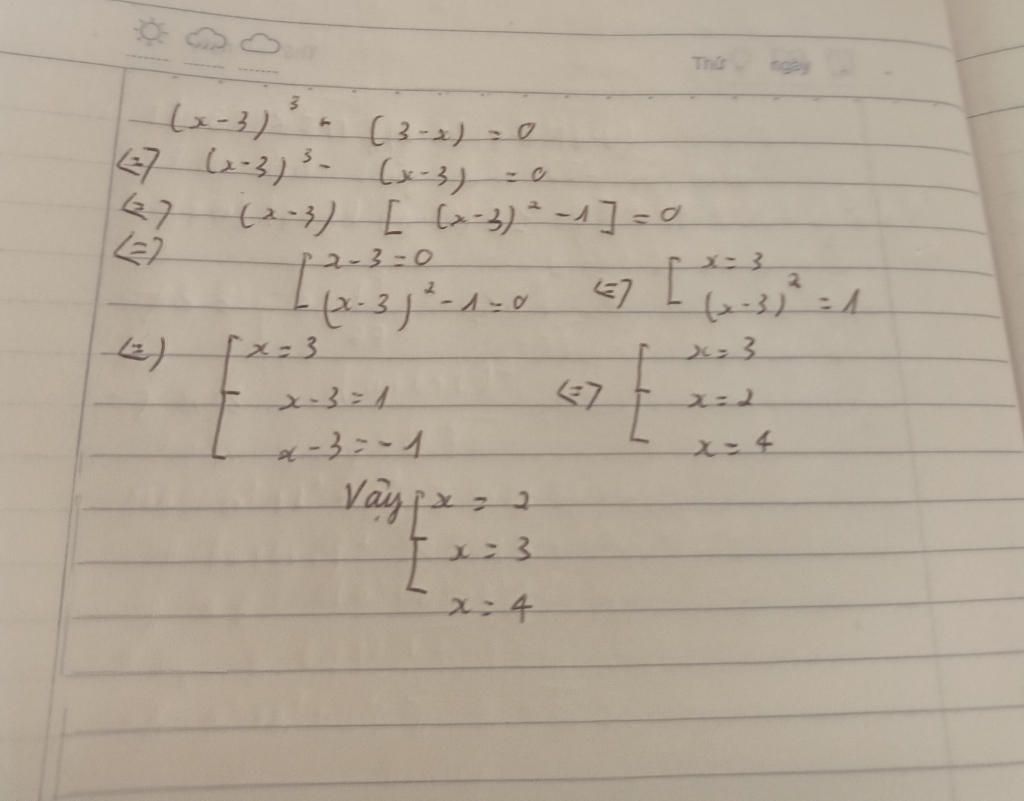 Thứ ngày
(x-3)³ + (3-x) = 0
<=> (x-3)³ - (x-3) = 0
<=> (x-3) [ (x-3)² - 1 ] = 0
<=> [ x-3=0 <=> [ x=3
(x-3)² - 1 = 0 (x-3)² = 1
<=> [ x=3 <=> [ x=3
x-3=1 x=2
x-3=-1 x=4
Vậy [ x = 2
x = 3
x = 4